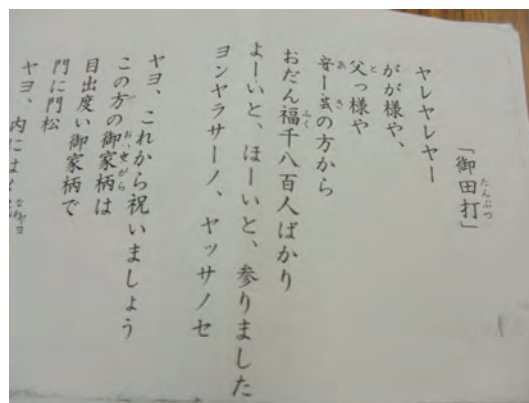 「御田打」
ヤレヤレヤー
がが様や、
父っ様や
安ー芸の方から
おだん福千八百人ばかり
よーいと、ほーいと、参りました
ヨンヤラサーノ、ヤッサノセ
ヤヨ、これから祝いましょう
この方の御家柄は
目出度い御家柄で
門に門松
ヤヨ、内には